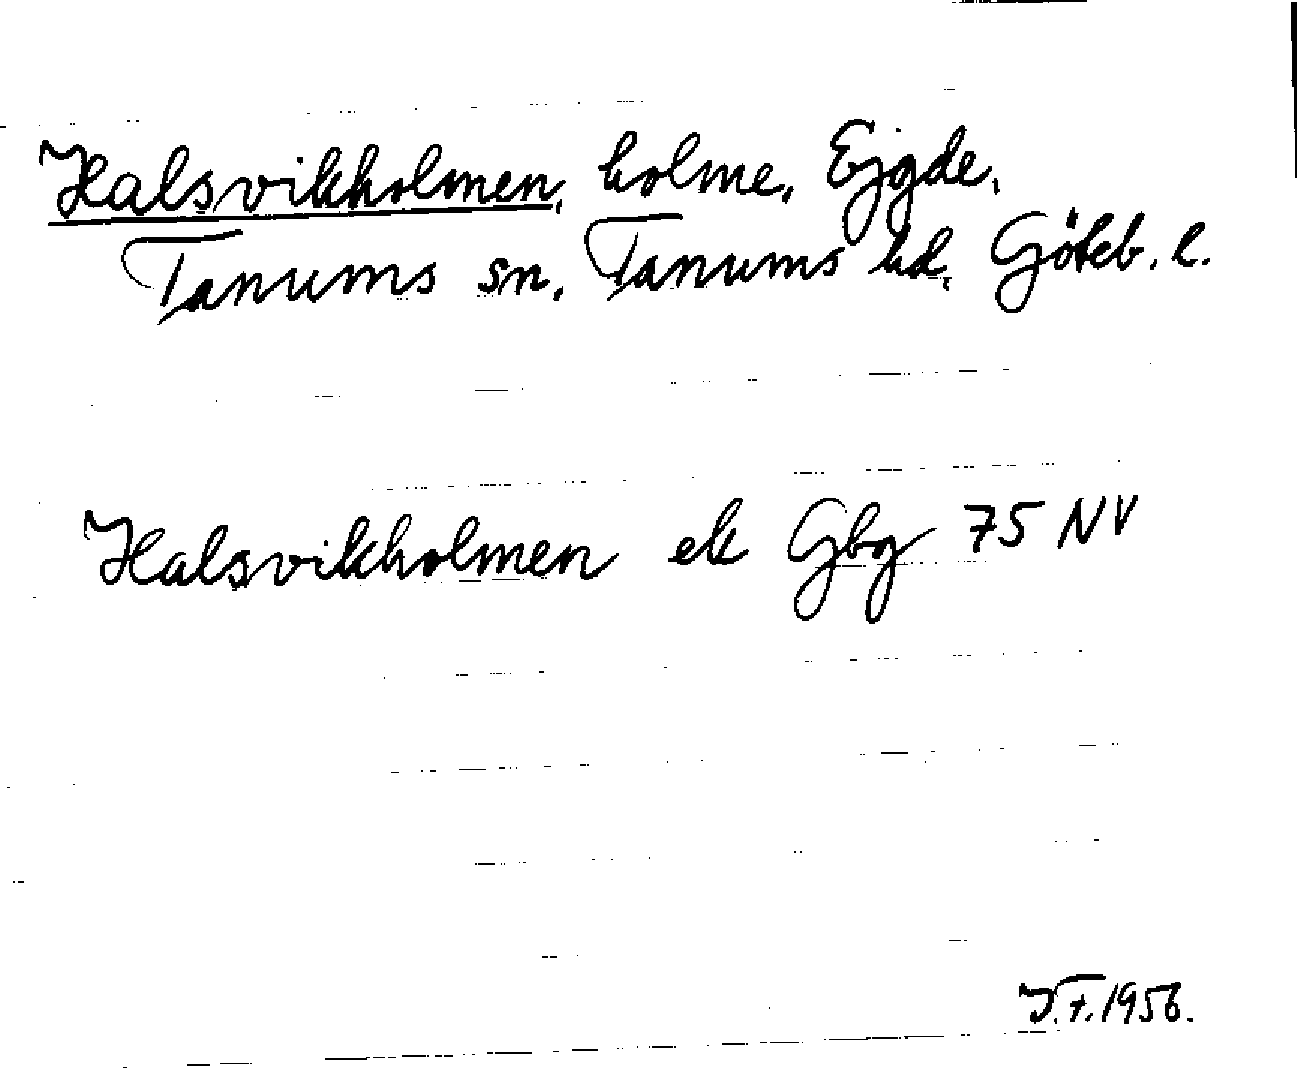 Halsvikholmen, holme, Ejgde,
Tanums sn, Tanums hd, Göteb. l.
Halsvikholmen ek Gbg 75 NV
J.F. 1956.